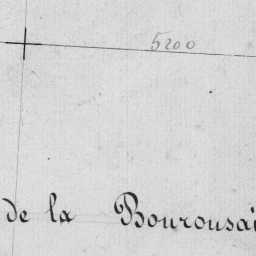 5200
de la Bourousai